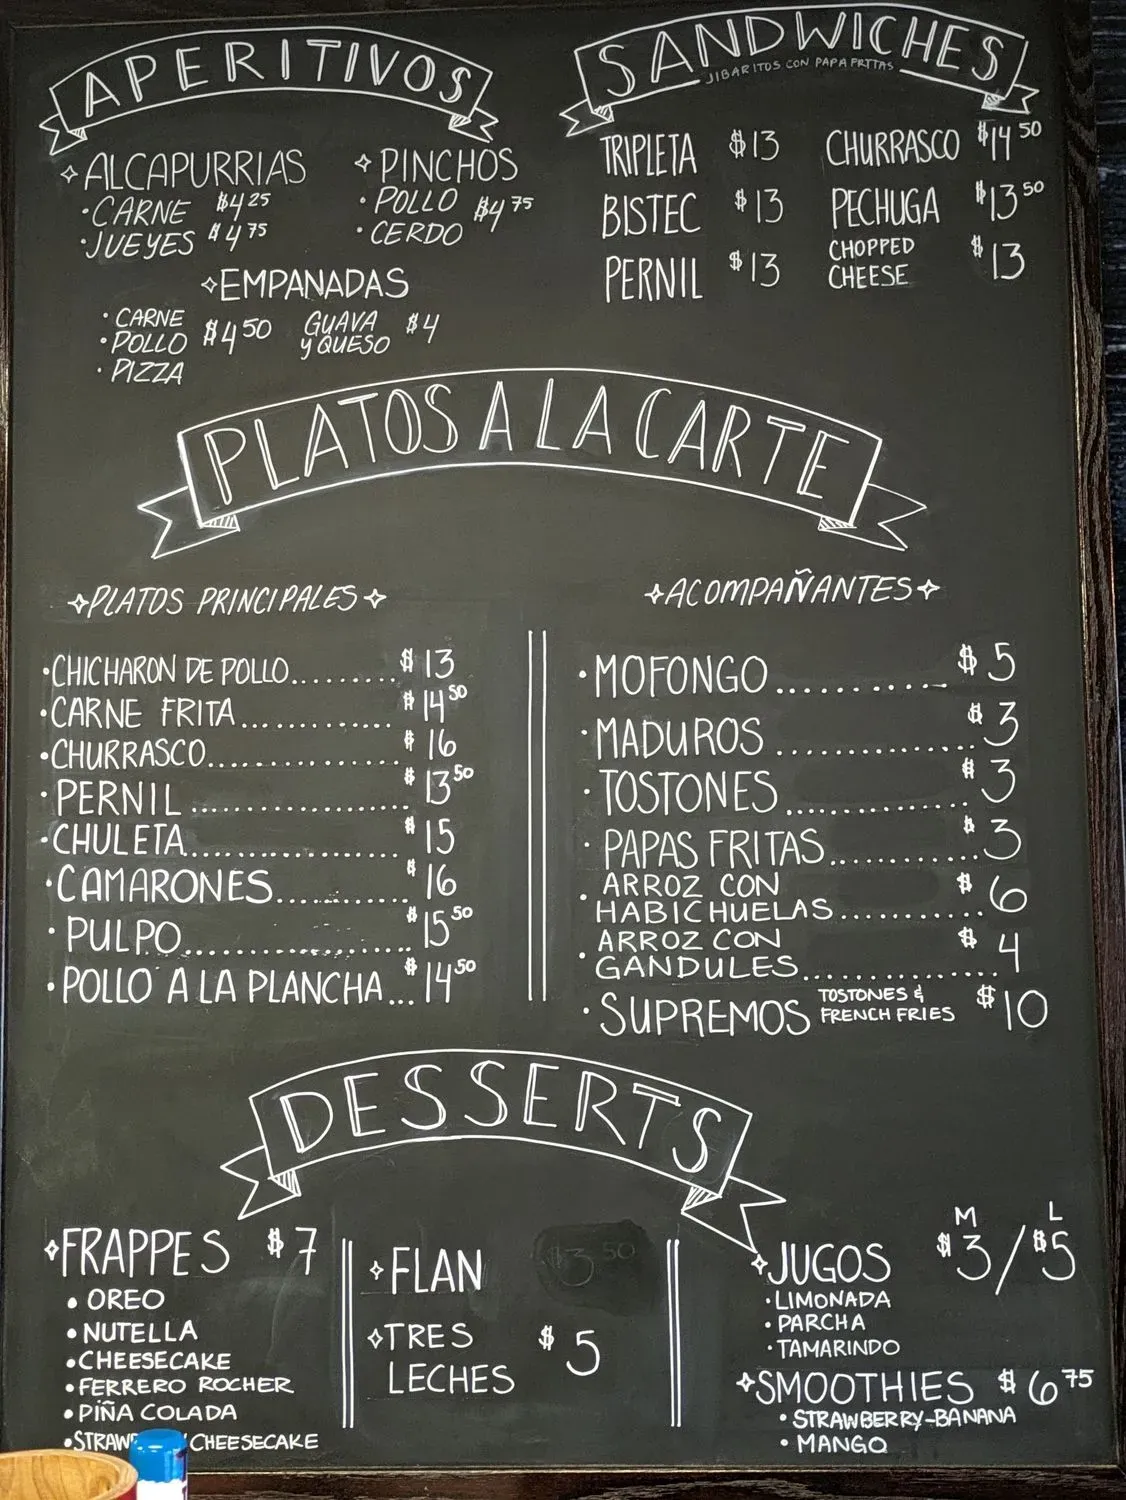 APERITIVOS
ALCAPURRIAS
• CARNE $4 25
• JUEYES $4 75
PINCHOS
• POLLO $4 75
• CERDO
EMPANADAS
• CARNE
• POLLO $4 50
• PIZZA
GUAVA
y QUESO $4
SANDWICHES
JIBARITOS CON PAPA FRITAS
TRIPLETA $13
BISTEC $13
PERNIL $13
CHURRASCO $14 50
PECHUGA $13 50
CHOPPED
CHEESE $13
PLATOS A LA CARTE
PLATOS PRINCIPALES
• CHICHARON DE POLLO......... $13
• CARNE FRITA............. $14 50
• CHURRASCO................ $16
• PERNIL.................. $13 50
• CHULETA.................. $15
• CAMARONES............ $16
• PULPO.................... $15 50
• POLLO A LA PLANCHA... $14 50
ACOMPAÑANTES
• MOFONGO........... $5
• MADUROS............... $3
• TOSTONES............. $3
• PAPAS FRITAS........... $3
• ARROZ CON
HABICHUELAS........... $6
• ARROZ CON
GANDULES............... $4
• SUPREMOS TOSTONES & FRENCH FRIES $10
DESSERTS
FRAPPES $7
• OREO
• NUTELLA
• CHEESECAKE
• FERRERO ROCHER
• PIÑA COLADA
CHEESECAKE
FLAN $3 50
TRES
LECHES $5
M L
JUGOS $3/$5
• LIMONADA
• PARCHA
• TAMARINDO
SMOOTHIES $6 75
• STRAWBERRY-BANANA
• MANGO